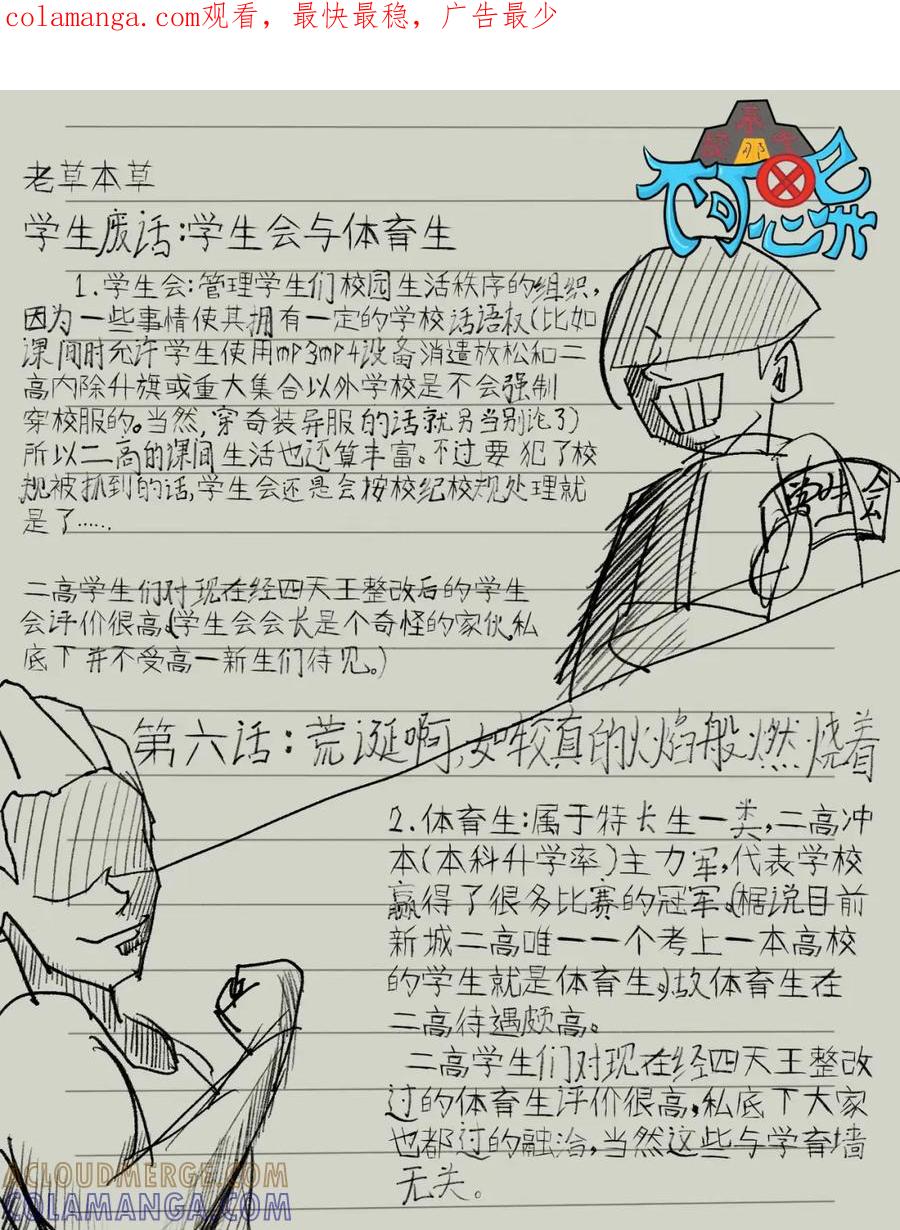 colamanga.com观看，最快最稳，广告最少
不可忽异
老草本草
学生废话:学生会与体育生
1.学生会:管理学生们校园生活秩序的组织,
因为一些事情使其拥有一定的学校话语权(比如
课间时允许学生使用mp3mp4设备消遣放松和二
高内除升旗或重大集合以外学校是不会强制
穿校服的。当然,穿奇装异服的话就另当别论了)
所以二高的课间生活也还算丰富。不过要犯了校
规被抓到的话,学生会还是会按校纪校规处理就
是了……
学生会
二高学生们对现在经四天王整改后的学生
会评价很高。(学生会会长是个奇怪的家伙,私
底下并不受高一新生们待见。)
第六话:荒诞啊,如较真的火焰般燃烧着
2.体育生:属于特长生一类,二高冲
本(本科升学率)主力军,代表学校
赢得了很多比赛的冠军。(据说目前
新城二高唯一一个考上一本高校
的学生就是体育生。)故体育生在
二高待遇颇高。
二高学生们对现在经四天王整改
过的体育生评价很高,私底下大家
也都过的融洽,当然这些与学育墙
无关。
ACLOUDMERGE.COM
COLAMANGA.COM